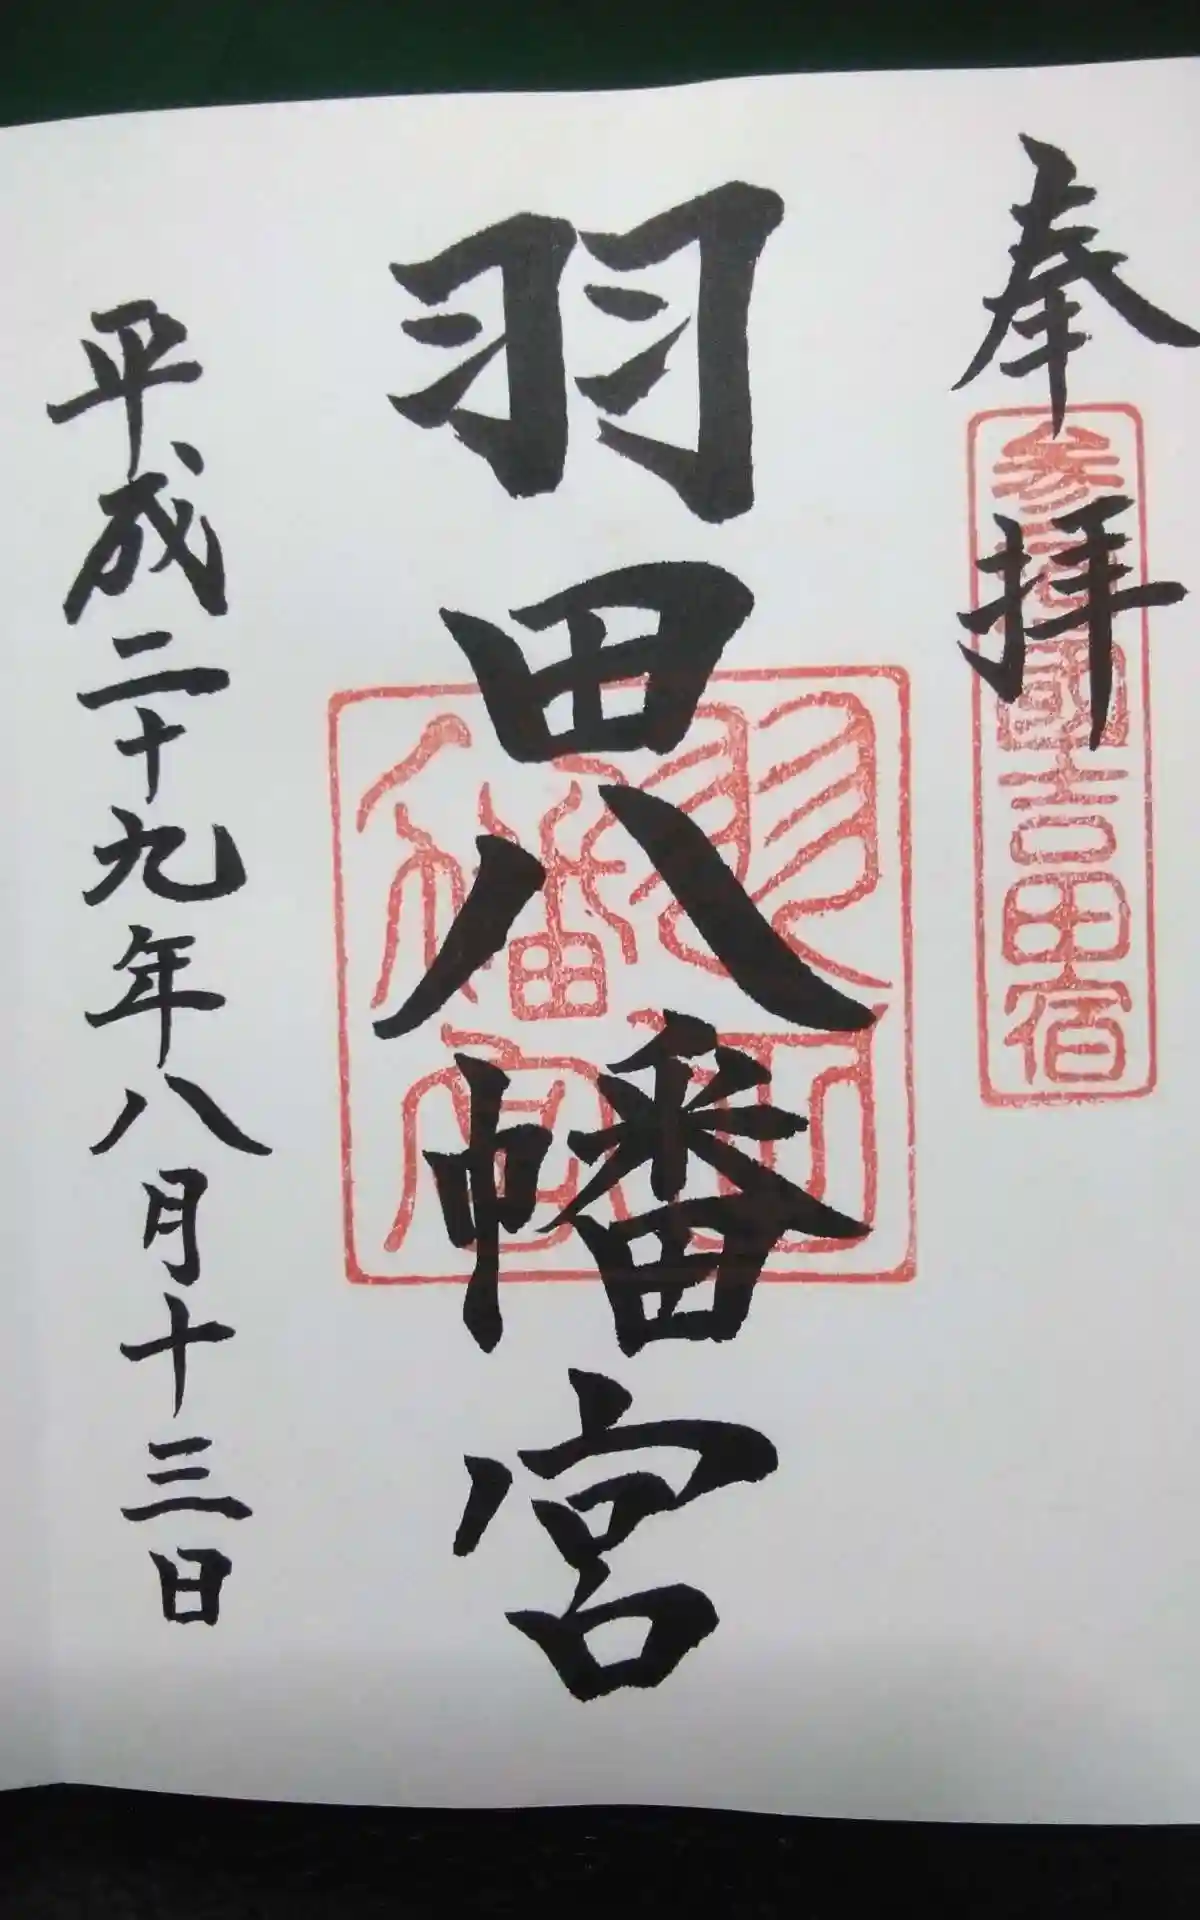 奉拝
参河國吉田宿
羽田八幡宮
羽田八幡宮
平成二十九年八月十三日